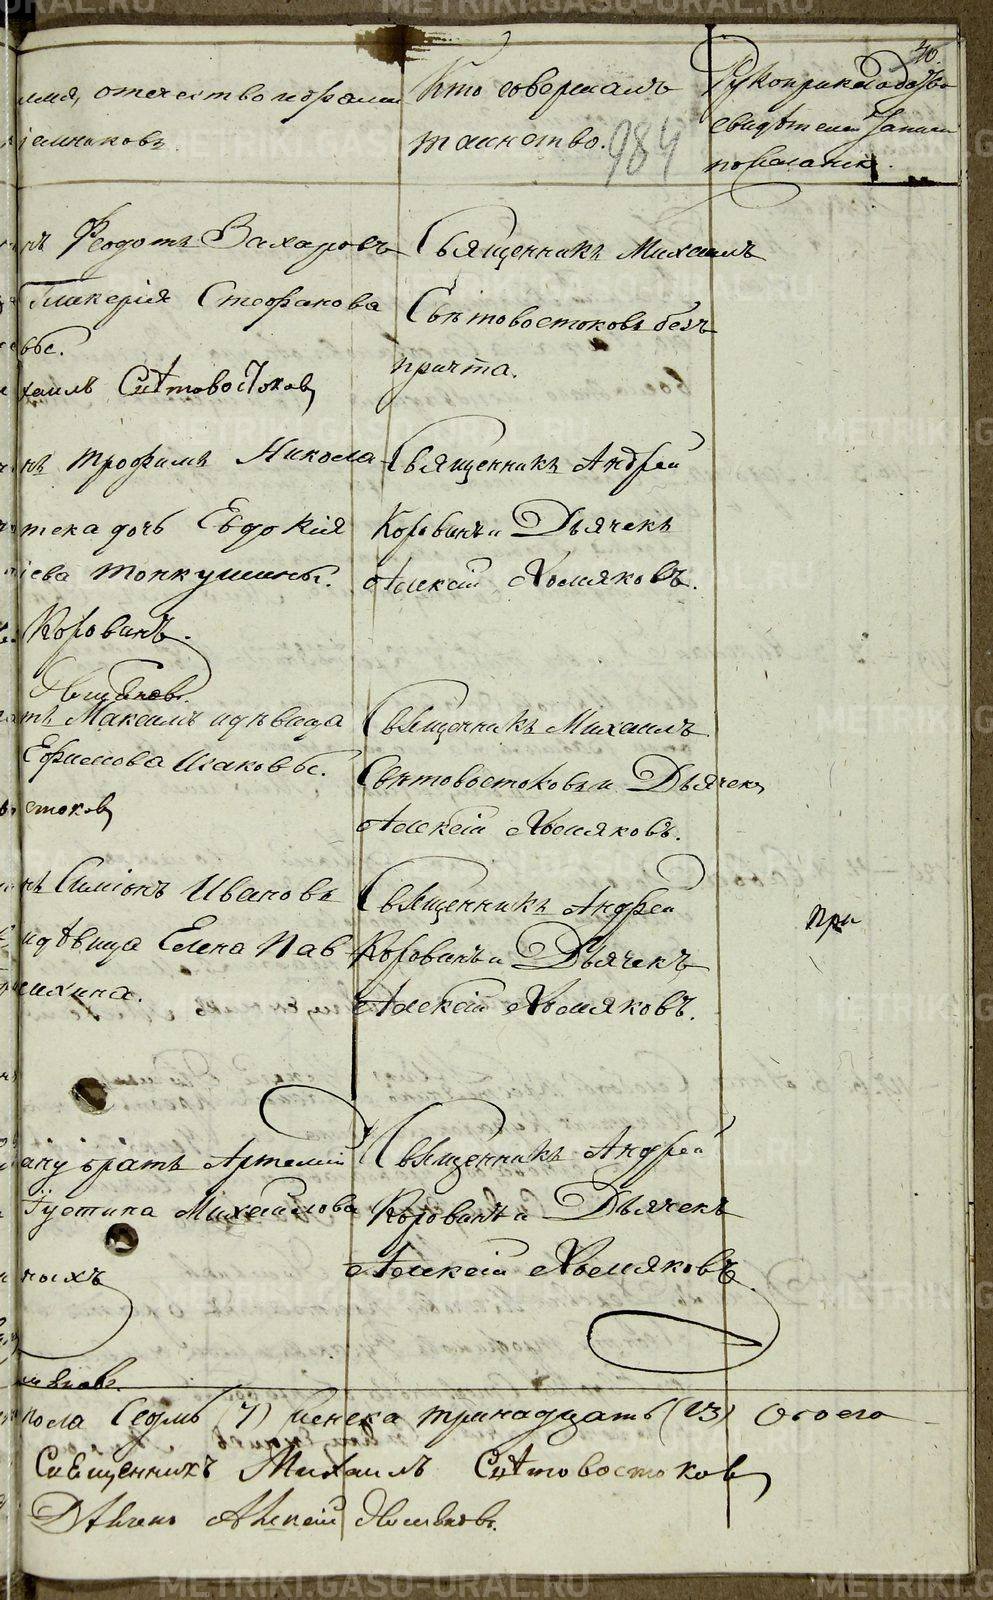 METRIKI.GASO-URAL.RU
40.
имя, отечество и фамил
іемниковъ
Кто совершалъ
таинство.
984
Рукоприкладство
свидѣтелей записи
по желанію
нъ Феодотъ Захаровъ
Гликерія Стефанова
вы.
хаилъ Свѣтовостоковъ
Священникъ Михаилъ
Свѣтовостоковъ безъ
причта.
нъ Трофимъ Никола
тека дочь Евдокія
іева Тонкушины.
Корованъ.
Священникъ Андрей
Корованъ и Дьячекъ
Алексій Хомяковъ.
тъ Максимъ и дѣвица
Ефимова Исаковы.
стоковъ
Священникъ Михаилъ
Свѣтовостоковъ и Дьячекъ
Алексій Хомяковъ.
нъ Симіонъ Ивановъ
и дѣвица Елена Пав
ихина.
Священникъ Андрей
Корованъ и Дьячекъ
Алексій Хомяковъ.
при
ану братъ Артемій
Іустина Михайлова
ныхъ
Священникъ Андрей
Корованъ и Дьячекъ
Алексій Хомяковъ
пола Седмь (7) женска тринадцать (13) Обоего
Священникъ Михаилъ Свѣтовостоковъ
Дьячекъ Алексій Хомяковъ.
METRIKI.GASO-URAL.RU